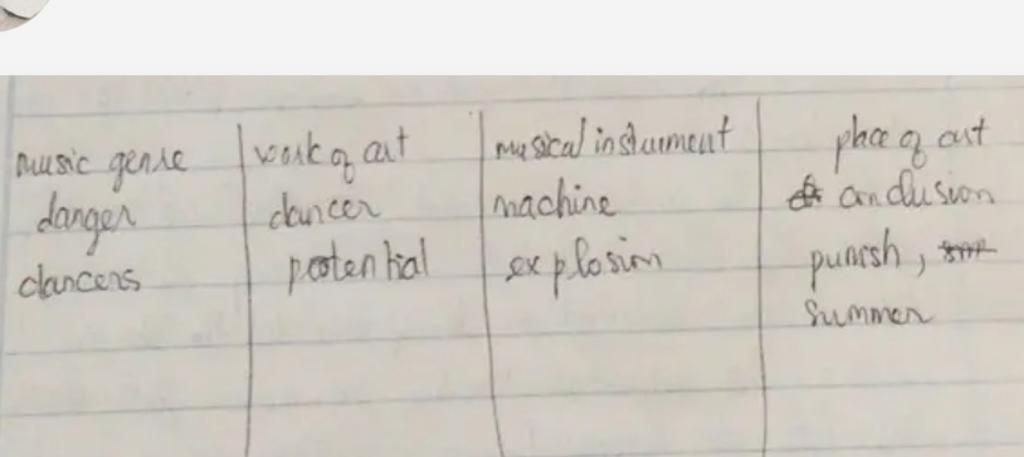 music genre | work of art | musical instrument | place of art
danger | dancer | machine | conclusion
dancers | potential | explosion | punish,
summer